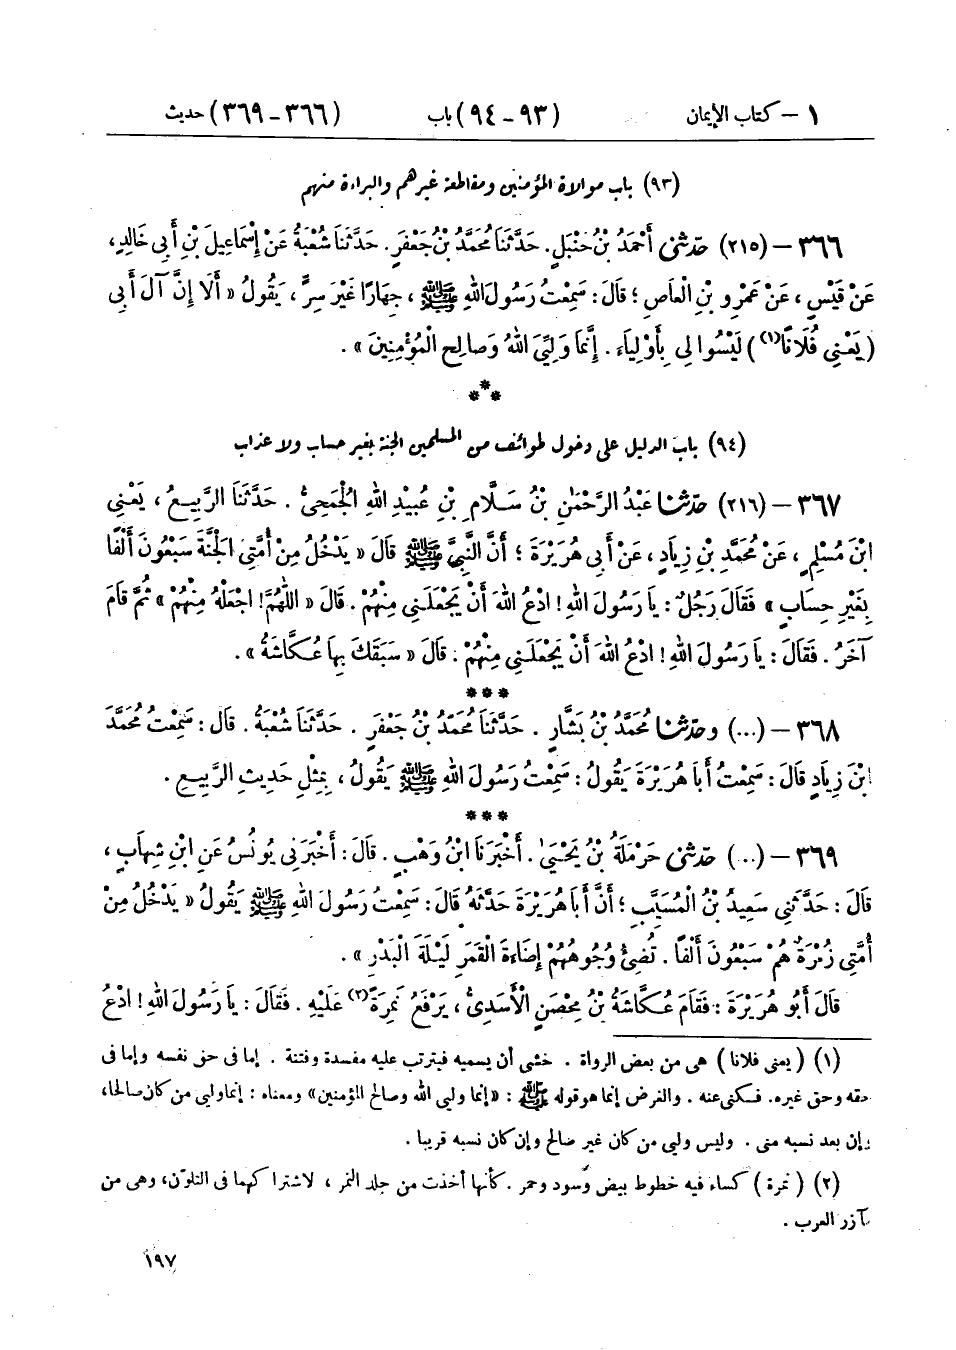 ١ – كتاب الإيمان (٩٣ – ٩٤) باب (٣٦٦ – ٣٦٩) حديث
(٩٣) باب موالاة المؤمنين ومقاطعة غيرهم والبراءة منهم
٣٦٦ – (٢١٥) حَدَّثَنِي أَحْمَدُ بْنُ حَنْبَلٍ . حَدَّثَنَا مُحَمَّدُ بْنُ جَعْفَرٍ . حَدَّثَنَا شُعْبَةُ عَنْ إِسْمَاعِيلَ بْنِ أَبِي خَالِدٍ ،
عَنْ قَيْسٍ ، عَنْ عَمْرِو بْنِ الْعَاصِ ؛ قَالَ : سَمِعْتُ رَسُولَ اللهِ ﷺ ، جِهَارًا غَيْرَ سِرٍّ ، يَقُولُ « أَلَا إِنَّ آلَ أَبِي
( يَعْنِي فُلَانًا(١) ) لَيْسُوا لِي بِأَوْلِيَاءَ . إِنَّمَا وَلِيِّيَ اللهُ وَصَالِحُ الْمُؤْمِنِينَ » .
***
(٩٤) باب الدليل على دخول طوائف من المسلمين الجنة بغير حساب ولا عذاب
٣٦٧ – (٢١٦) حَدَّثَنَا عَبْدُ الرَّحْمَنِ بْنُ سَلَّامِ بْنِ عُبَيْدِ اللهِ الْجُمَحِيُّ . حَدَّثَنَا الرَّبِيعُ ، يَعْنِي
ابْنَ مُسْلِمٍ ، عَنْ مُحَمَّدِ بْنِ زِيَادٍ ، عَنْ أَبِي هُرَيْرَةَ ؛ أَنَّ النَّبِيَّ ﷺ قَالَ « يَدْخُلُ مِنْ أُمَّتِي الْجَنَّةَ سَبْعُونَ أَلْفًا
بِغَيْرِ حِسَابٍ » فَقَالَ رَجُلٌ : يَا رَسُولَ اللهِ ! ادْعُ اللهَ أَنْ يَجْعَلَنِي مِنْهُمْ . قَالَ « اللّٰهُمَّ ! اجْعَلْهُ مِنْهُمْ » ثُمَّ قَامَ
آخَرُ . فَقَالَ : يَا رَسُولَ اللهِ ! ادْعُ اللهَ أَنْ يَجْعَلَنِي مِنْهُمْ . قَالَ « سَبَقَكَ بِهَا عُكَّاشَةُ » .
***
٣٦٨ – (...) وَحَدَّثَنَا مُحَمَّدُ بْنُ بَشَّارٍ . حَدَّثَنَا مُحَمَّدُ بْنُ جَعْفَرٍ . حَدَّثَنَا شُعْبَةُ . قَالَ : سَمِعْتُ مُحَمَّدَ
ابْنَ زِيَادٍ قَالَ : سَمِعْتُ أَبَا هُرَيْرَةَ يَقُولُ : سَمِعْتُ رَسُولَ اللهِ ﷺ يَقُولُ ، بِمِثْلِ حَدِيثِ الرَّبِيعِ .
***
٣٦٩ – (...) حَدَّثَنِي حَرْمَلَةُ بْنُ يَحْيَىٰ . أَخْبَرَنَا ابْنُ وَهْبٍ . قَالَ : أَخْبَرَنِي يُونُسُ عَنِ ابْنِ شِهَابٍ ،
قَالَ : حَدَّثَنِي سَعِيدُ بْنُ الْمُسَيَّبِ ؛ أَنَّ أَبَا هُرَيْرَةَ حَدَّثَهُ قَالَ : سَمِعْتُ رَسُولَ اللهِ ﷺ يَقُولُ « يَدْخُلُ مِنْ
أُمَّتِي زُمْرَةٌ هُمْ سَبْعُونَ أَلْفًا . تُضِيءُ وُجُوهُهُمْ إِضَاءَةَ الْقَمَرِ لَيْلَةَ الْبَدْرِ » .
قَالَ أَبُو هُرَيْرَةَ : فَقَامَ عُكَّاشَةُ بْنُ مِحْصَنٍ الْأَسَدِيُّ ، يَرْفَعُ نَمِرَةً(٢) عَلَيْهِ . فَقَالَ : يَا رَسُولَ اللهِ ! ادْعُ
(١) ( يعني فلانا ) هي من بعض الرواة . خشي أن يسميه فيترتب عليه مفسدة وفتنة . إما في حق نفسه وإما في
حقه وحق غيره . فكنى عنه . والغرض إنما هو قوله ﷺ : «إنما وليي الله وصالح المؤمنين» ومعناه : إنما وليي من كان صالحا،
وإن بعد نسبه مني . وليس وليي من كان غير صالح وإن كان نسبه قريبا .
(٢) ( نمرة ) كساء فيه خطوط بيض وسود وحمر . كأنها أخذت من جلد النمر ، لاشتراكهما في التلون، وهي من
مآزر العرب .
١٩٧